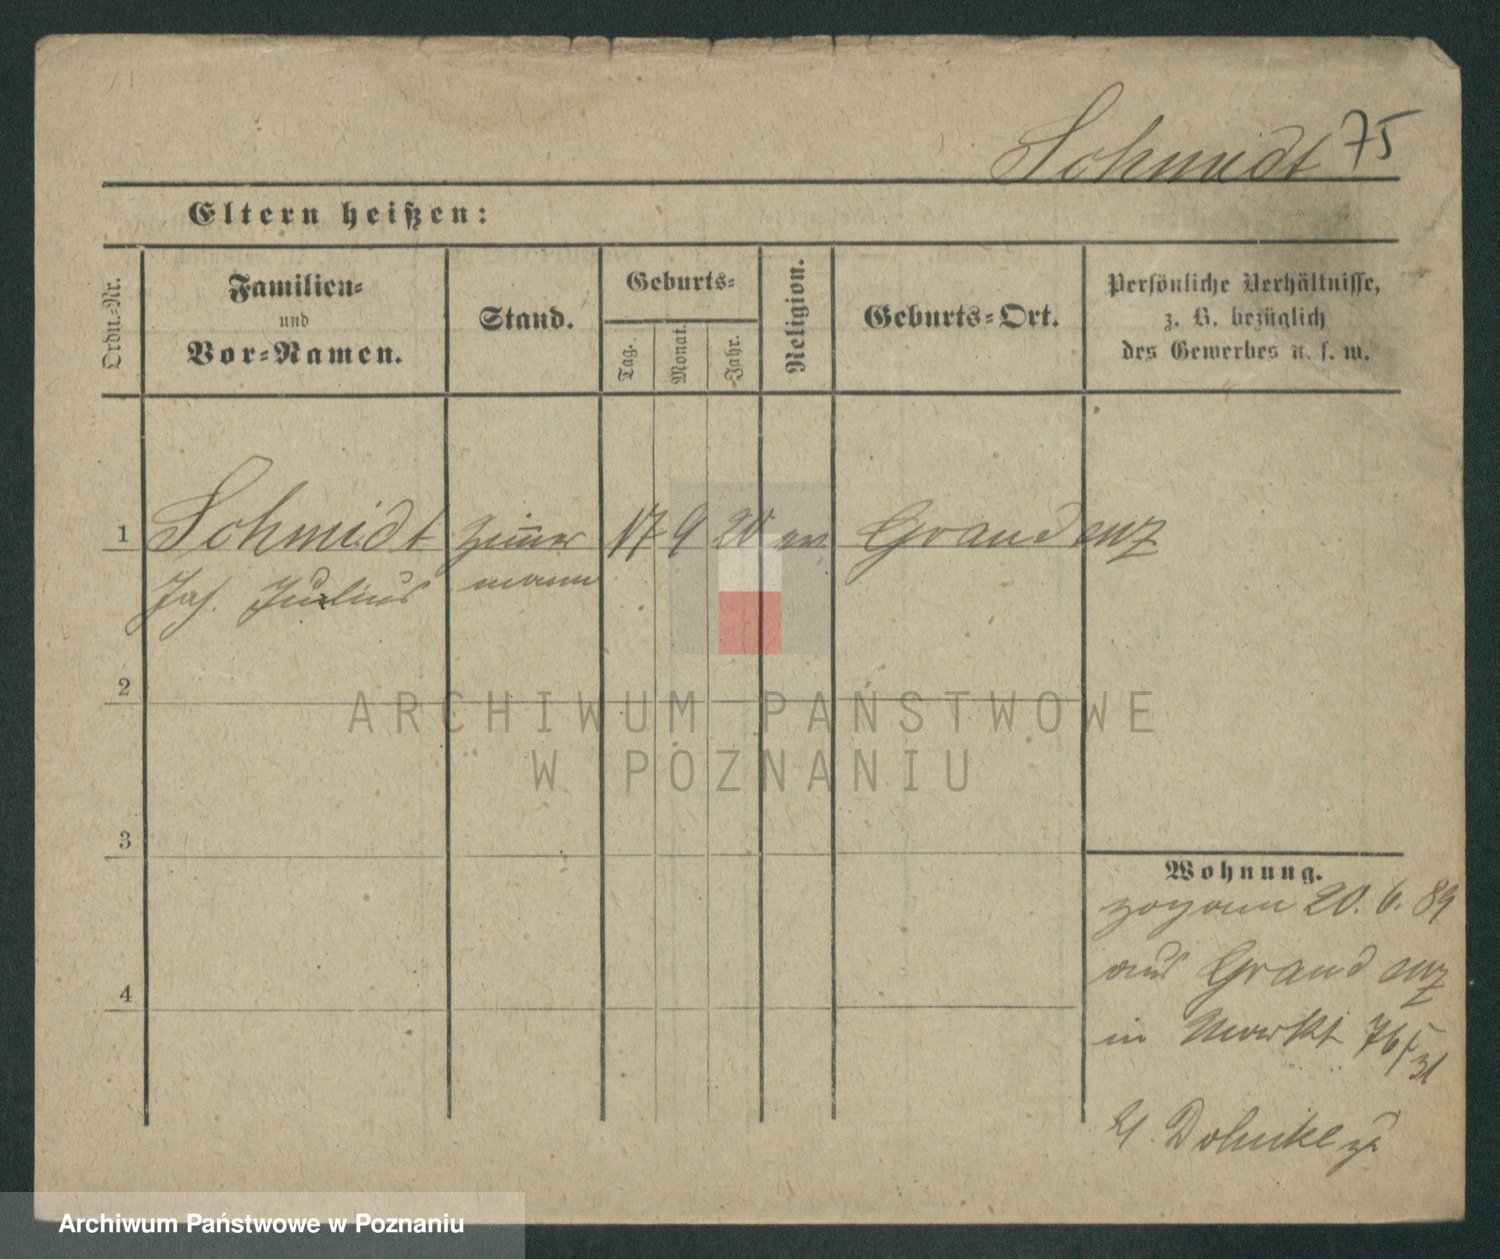 Schmidt 75
Eltern heißen:
Ordn.-Nr.
Familien-
und
Vor-Namen.
Stand.
Geburts-
Tag.
Monat.
Jahr.
Religion.
Geburts-Ort.
Persönliche Verhältnisse,
z. B. bezüglich
des Gewerbes u. s. w.
1 Schmidt Zim̄er 17 9 20 ev Graudenz
Joh. Julius mann
2
3
4
Wohnung.
20. 6. 89
aus Graudenz
in Markt 76
ARCHIWUM PAŃSTWOWE
W POZNANIU
Archiwum Państwowe w Poznaniu